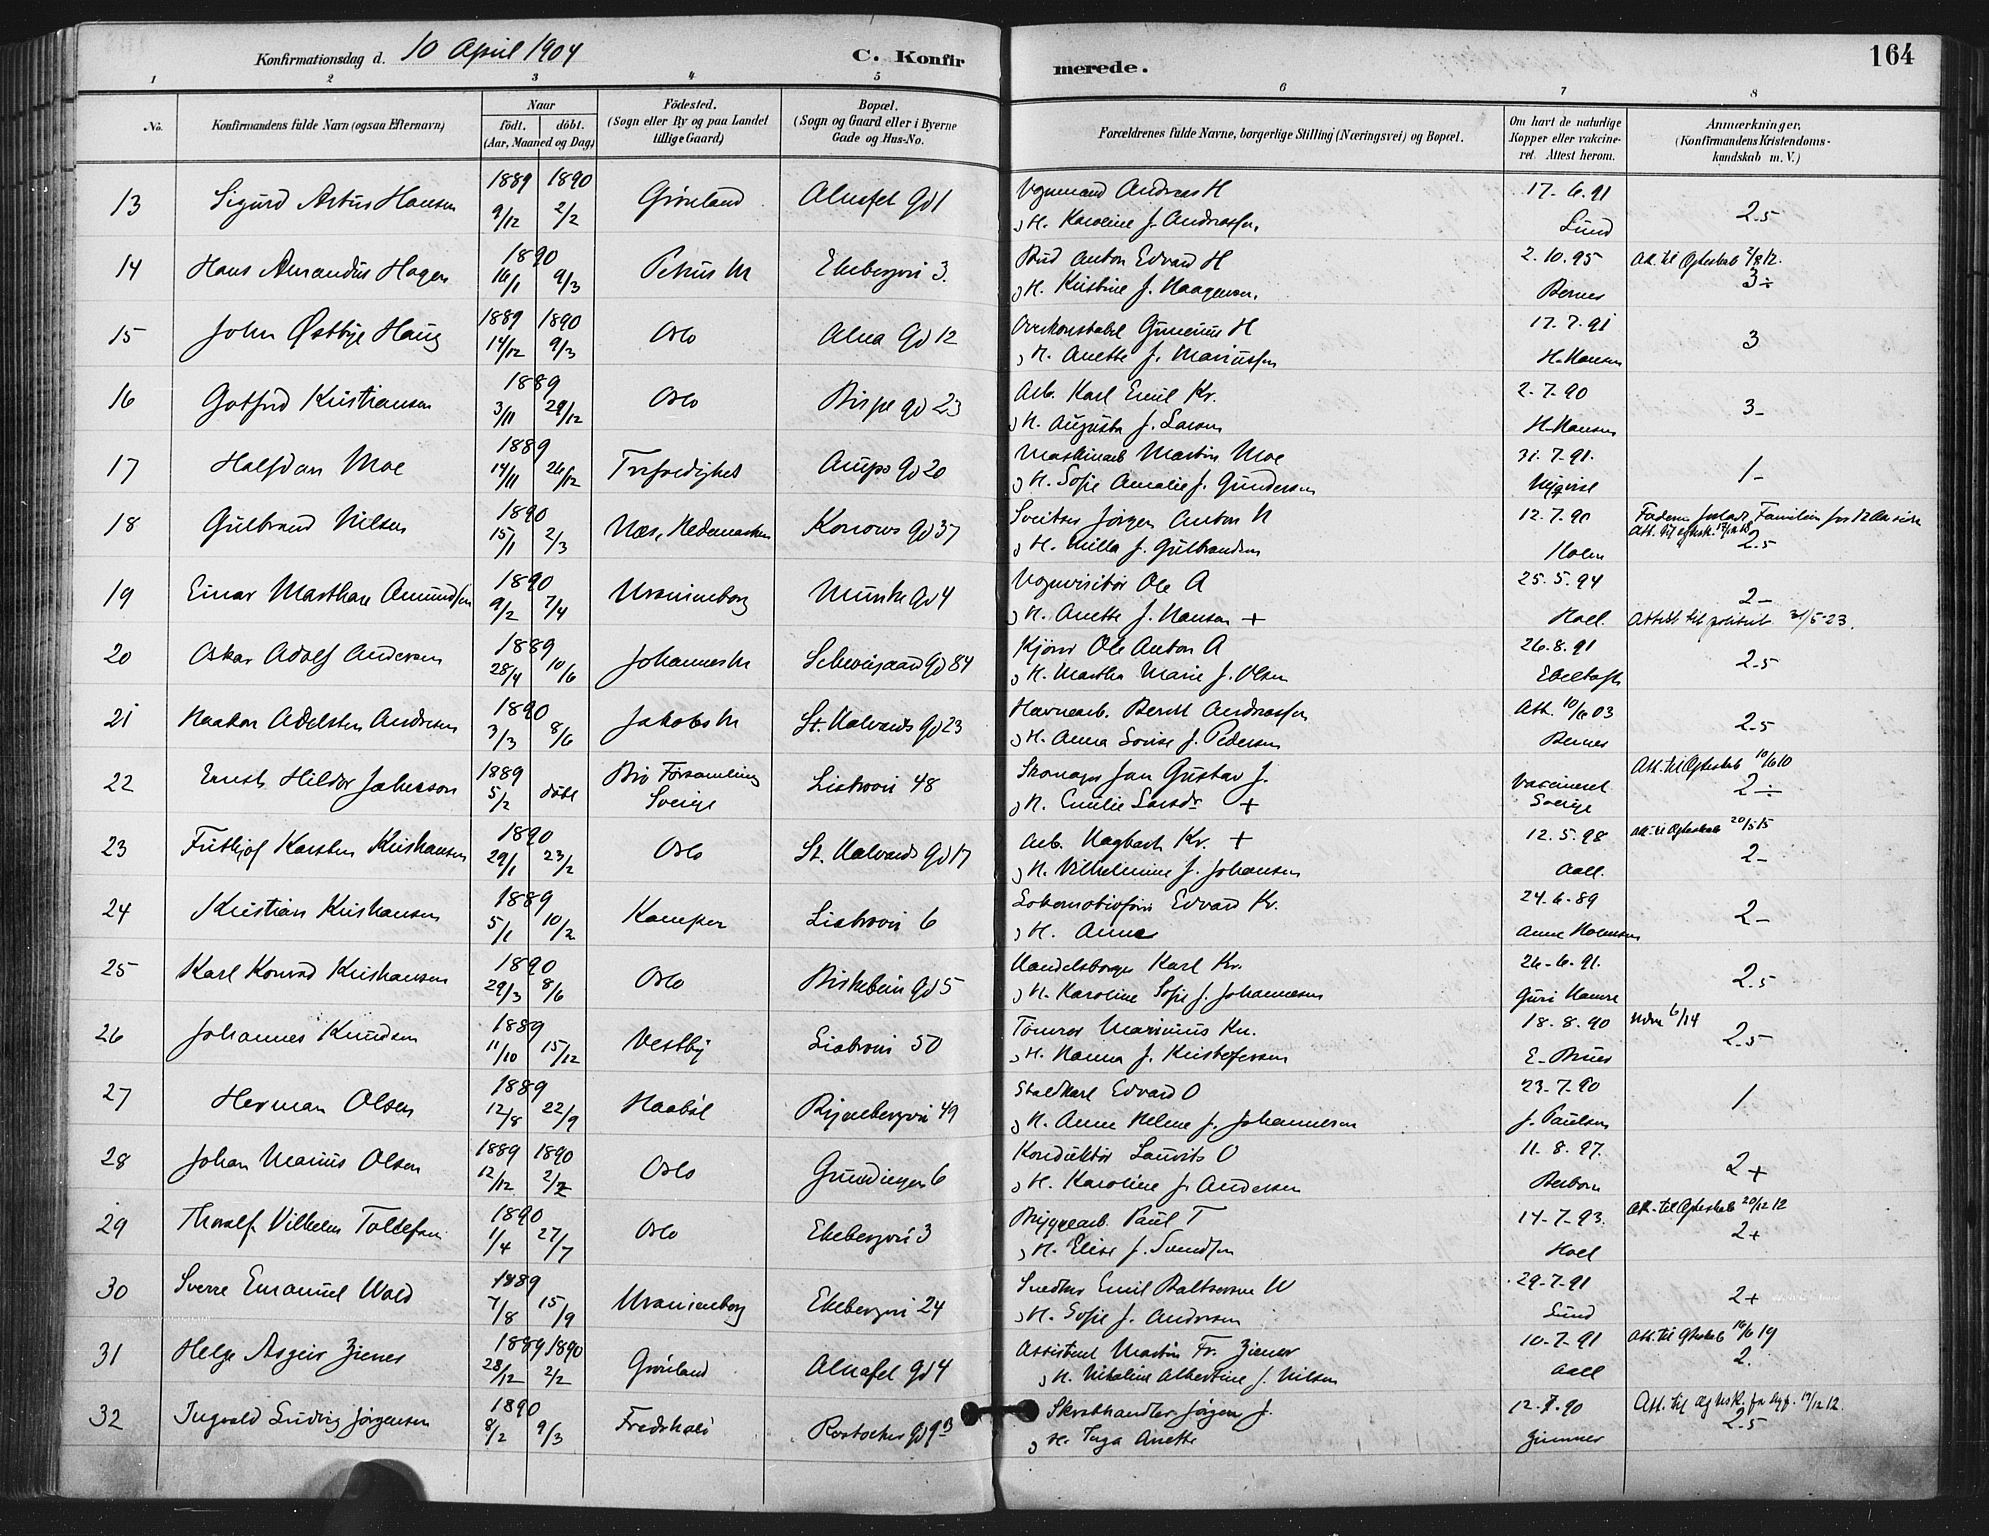 Konfirmationsdag d. 10 April 1904 C. Konfirmerede. 164
1 2 3 4 5 6 7 8
No. Konfirmandens fulde Navn (ogsaa Efternavn)
Naar
födt. döbt.
(Aar, Maaned og Dag)
Födested.
(Sogn eller By og paa Landet
tillige Gaard)
Bopæl.
(Sogn og Gaard eller i Byerne
Gade og Hus-No.
Forældrenes fulde Navne, borgerlige Stilling (Næringsvei) og Bopæl.
Om havt de naturlige
Kopper eller vakcine-
ret. Attest herom.
Anmærkninger,
(Konfirmandens Kristendoms-
kundskab m. V.)
13 Sigurd Artus Hansen 1889 9/12 1890 2/2 Grønland Alnafet Gd 1
Vognmand Andreas H
og H. Karoline f. Andreassen. 17-6.91 Lund 2.5
14 Hans Amandus Hagen 1890 16/1 9/3 Petrus M Ekebergvei 3.
Bud Anton Edvard H
og H. Kristine f. Haagensen. 2.10.95 Bernes Att. til Ægteskab 2/8 12. 3÷
15 John Østbye Haug 1889 14/12 1890 9/3 Oslo Alna Gd 12
Overkonstabel Gunerius H
og H. Anette f. Mariussen 17.7.91 H. Hansen 3
16 Gotfred Kristiansen 1889 3/11 29/12 Oslo Bispe Gd 23
Arb. Karl Emil Kr.
og H. Augusta f. Larsen 2.7.90 H. Hansen 3-
17 Halfdan Moe 1889 14/11 26/12 Trefoldighet Arups Gd 20
Maskinarb Martin Moe
og H. Sofie Amalie f. Gundersen 31.7.91. Nyqvist 1-
18 Gulbrand Nilsen 1890 15/1 2/3 Næs, Hedemarken Konows Gd 37
Sveitser Jørgen Anton N
og H. Milla f. Gulbrandsen 12.7.90 Holm Faderen forladt Familien for 12 Aar siden 2.5
19 Einar Marthan Amundsen 1890 9/2 7/4 Uranienborg Munke Gd 4
Vognvisitør Ole A
og H. Anette f. Hansen + 25.5.94 Hoel. 2- Attest til politiet 31/5-23.
20 Oskar Adolf Andersen 1889 28/4 10/6 Johannes M Schweigaard Gd 84
Kjører Ole Anton A
og H. Martha Marie f. Olsen 26.8.91 Ebeltoft 2.5
21 Haakon Adelsten Andresen 1890 3/3 8/6 Jakobs M St. Halvards Gd 23
Havnearb. Berent Andreassen
og H. Anna Lovise f. Pedersen Att. 10/11 03 Bernes 2.5
22 Ernst Hildor Johansson 1889 5/2 døbt Bro Forsamling Sverige Liabrovei 48
Skomager Jan Gustav J.
og H. Emilie Larsdr + Vaccineret Sverige Att. til Ægteskab 10/6 10 2÷
23 Frithjof Karsten Kristiansen 1890 29/1 23/2 Oslo St. Halvards Gd 17
Arb. Hagbart Kr. +
og H. Vilhelmine f. Johansen 12.5.98 Aall. Att. til Ægteskab 20/5 15 2-
24 Kristian Kristiansen 1889 5/1 10/2 Kampen Liabrovei 6
Lokomotivfører Edvard Kr.
og H. Anna 24.6.89 Anne Holmsen 2-
25 Karl Konrad Kristiansen 1890 29/3 8/6 Oslo Birkebein Gd 5
Handelsborger Karl Kr.
og H. Karoline Sofie f. Johannesen 26-6.91. Guri Hamre 2.5
26 Johannes Knudsen 1889 11/10 15/12 Vestby Liabrovei 50
Tømrer Marinius Kn.
og H. Hanna f. Kristofersen 18.8.90 E. Bruus 6/14 2.5
27 Herman Olsen 1889 12/8 22/9 Haabøl Ryenbergvei 49
Staldkarl Edvard O
og H. Anne Helene f. Johannesen 23.7.90 J. Paulsen 1
28 Johan Marius Olsen 1889 12/12 1890 2/2 Oslo Grundingen 6
Konduktør Lauvits O
og H. Karoline f. Andersen 11.8.97. Berbom 2+
29 Thoralf Vilhelm Tollefsen 1890 1/4 27/7 Oslo Ekebergvei 3
Bryggearb. Paul T
og H. Elise f. Svendsen 14-7-93. Hoel Att. til Ægteskab 20/12 12 2+
30 Sverre Emanuel Wold 1889 7/8 15/9 Uranienborg Ekebergvei 24
Snedker Emil Baltsersen W
og H. Sofie f. Andersen 29-7-91 Lund 2+
31 Helge Asgeir Ziener 1889 28/12 1890 2/2 Grønland Alnafet Gd 4
Assistent Martin Fr. Ziener
og H. Nikoline Albertine f. Nilsen 10.7.91 Aall Att. til Ægteskab 16/6 19 2.
32 Ingvald Ludvig Jørgensen 1890 8/2 9/3 Fredshald Rostocker Gd 9 B
Skraphandler Jørgen J.
og H. Inga Anette 12.7.90 Zimmer Att. til Ægtesk. fr. Lysn. 19/12 12. 2.5